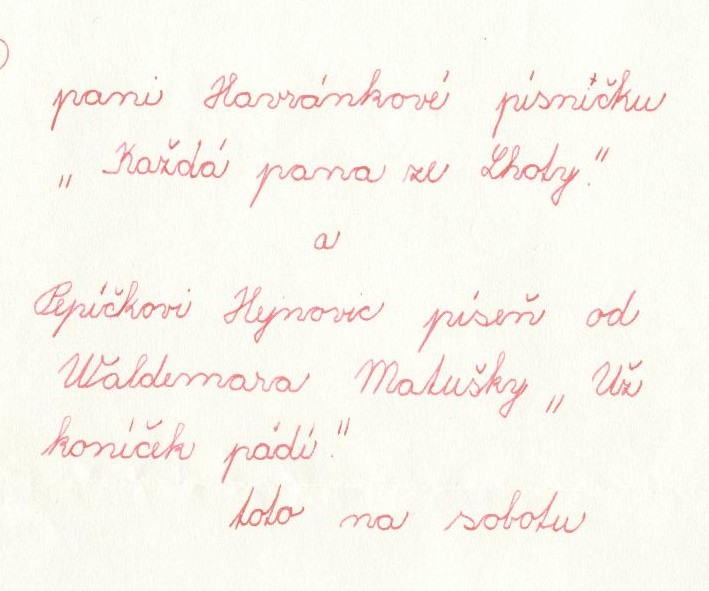 pani Havránkové písničku
„Každá pana ze Lhoty."
a
Pepíčkovi Hejnovic píseň od
Waldemara Matušky „Už
koníček pádí."
toto na sobotu